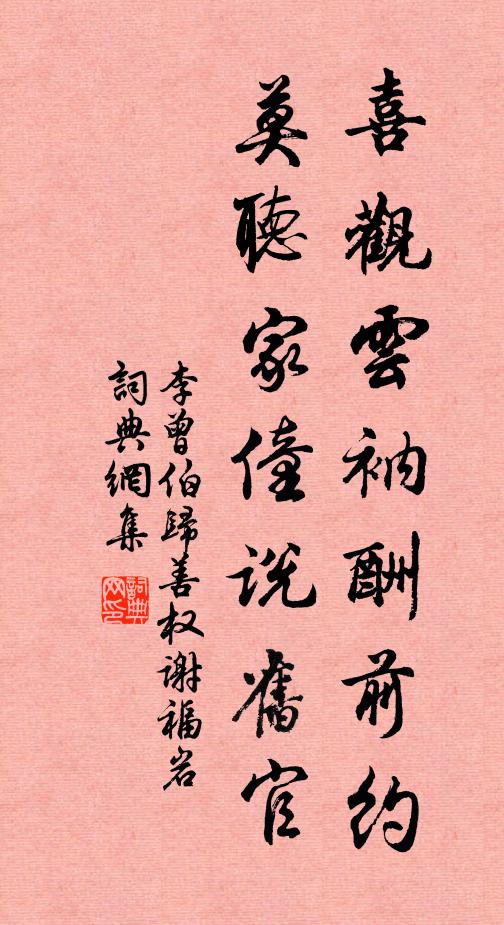 喜觀雲衲酬前約
莫聽家僮說舊官
李曾伯歸善权谢福岩
詞典網集
詞典网印